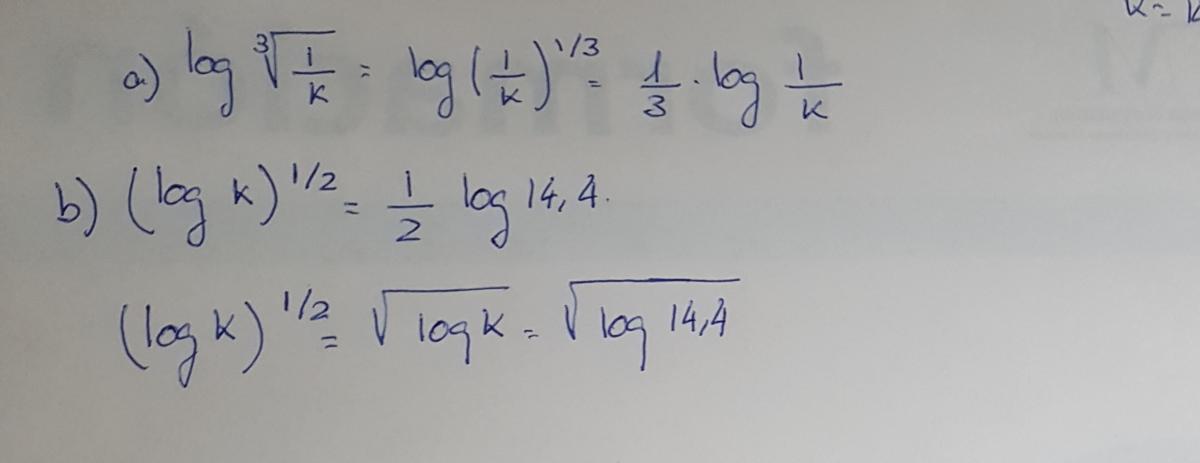 k = k
a) log ∛(1/k) = log (1/k)^1/3 = 1/3 · log 1/k
b) (log k)^1/2 = 1/2 log 14,4.
(log k)^1/2 = √(log k) = √(log 14,4)